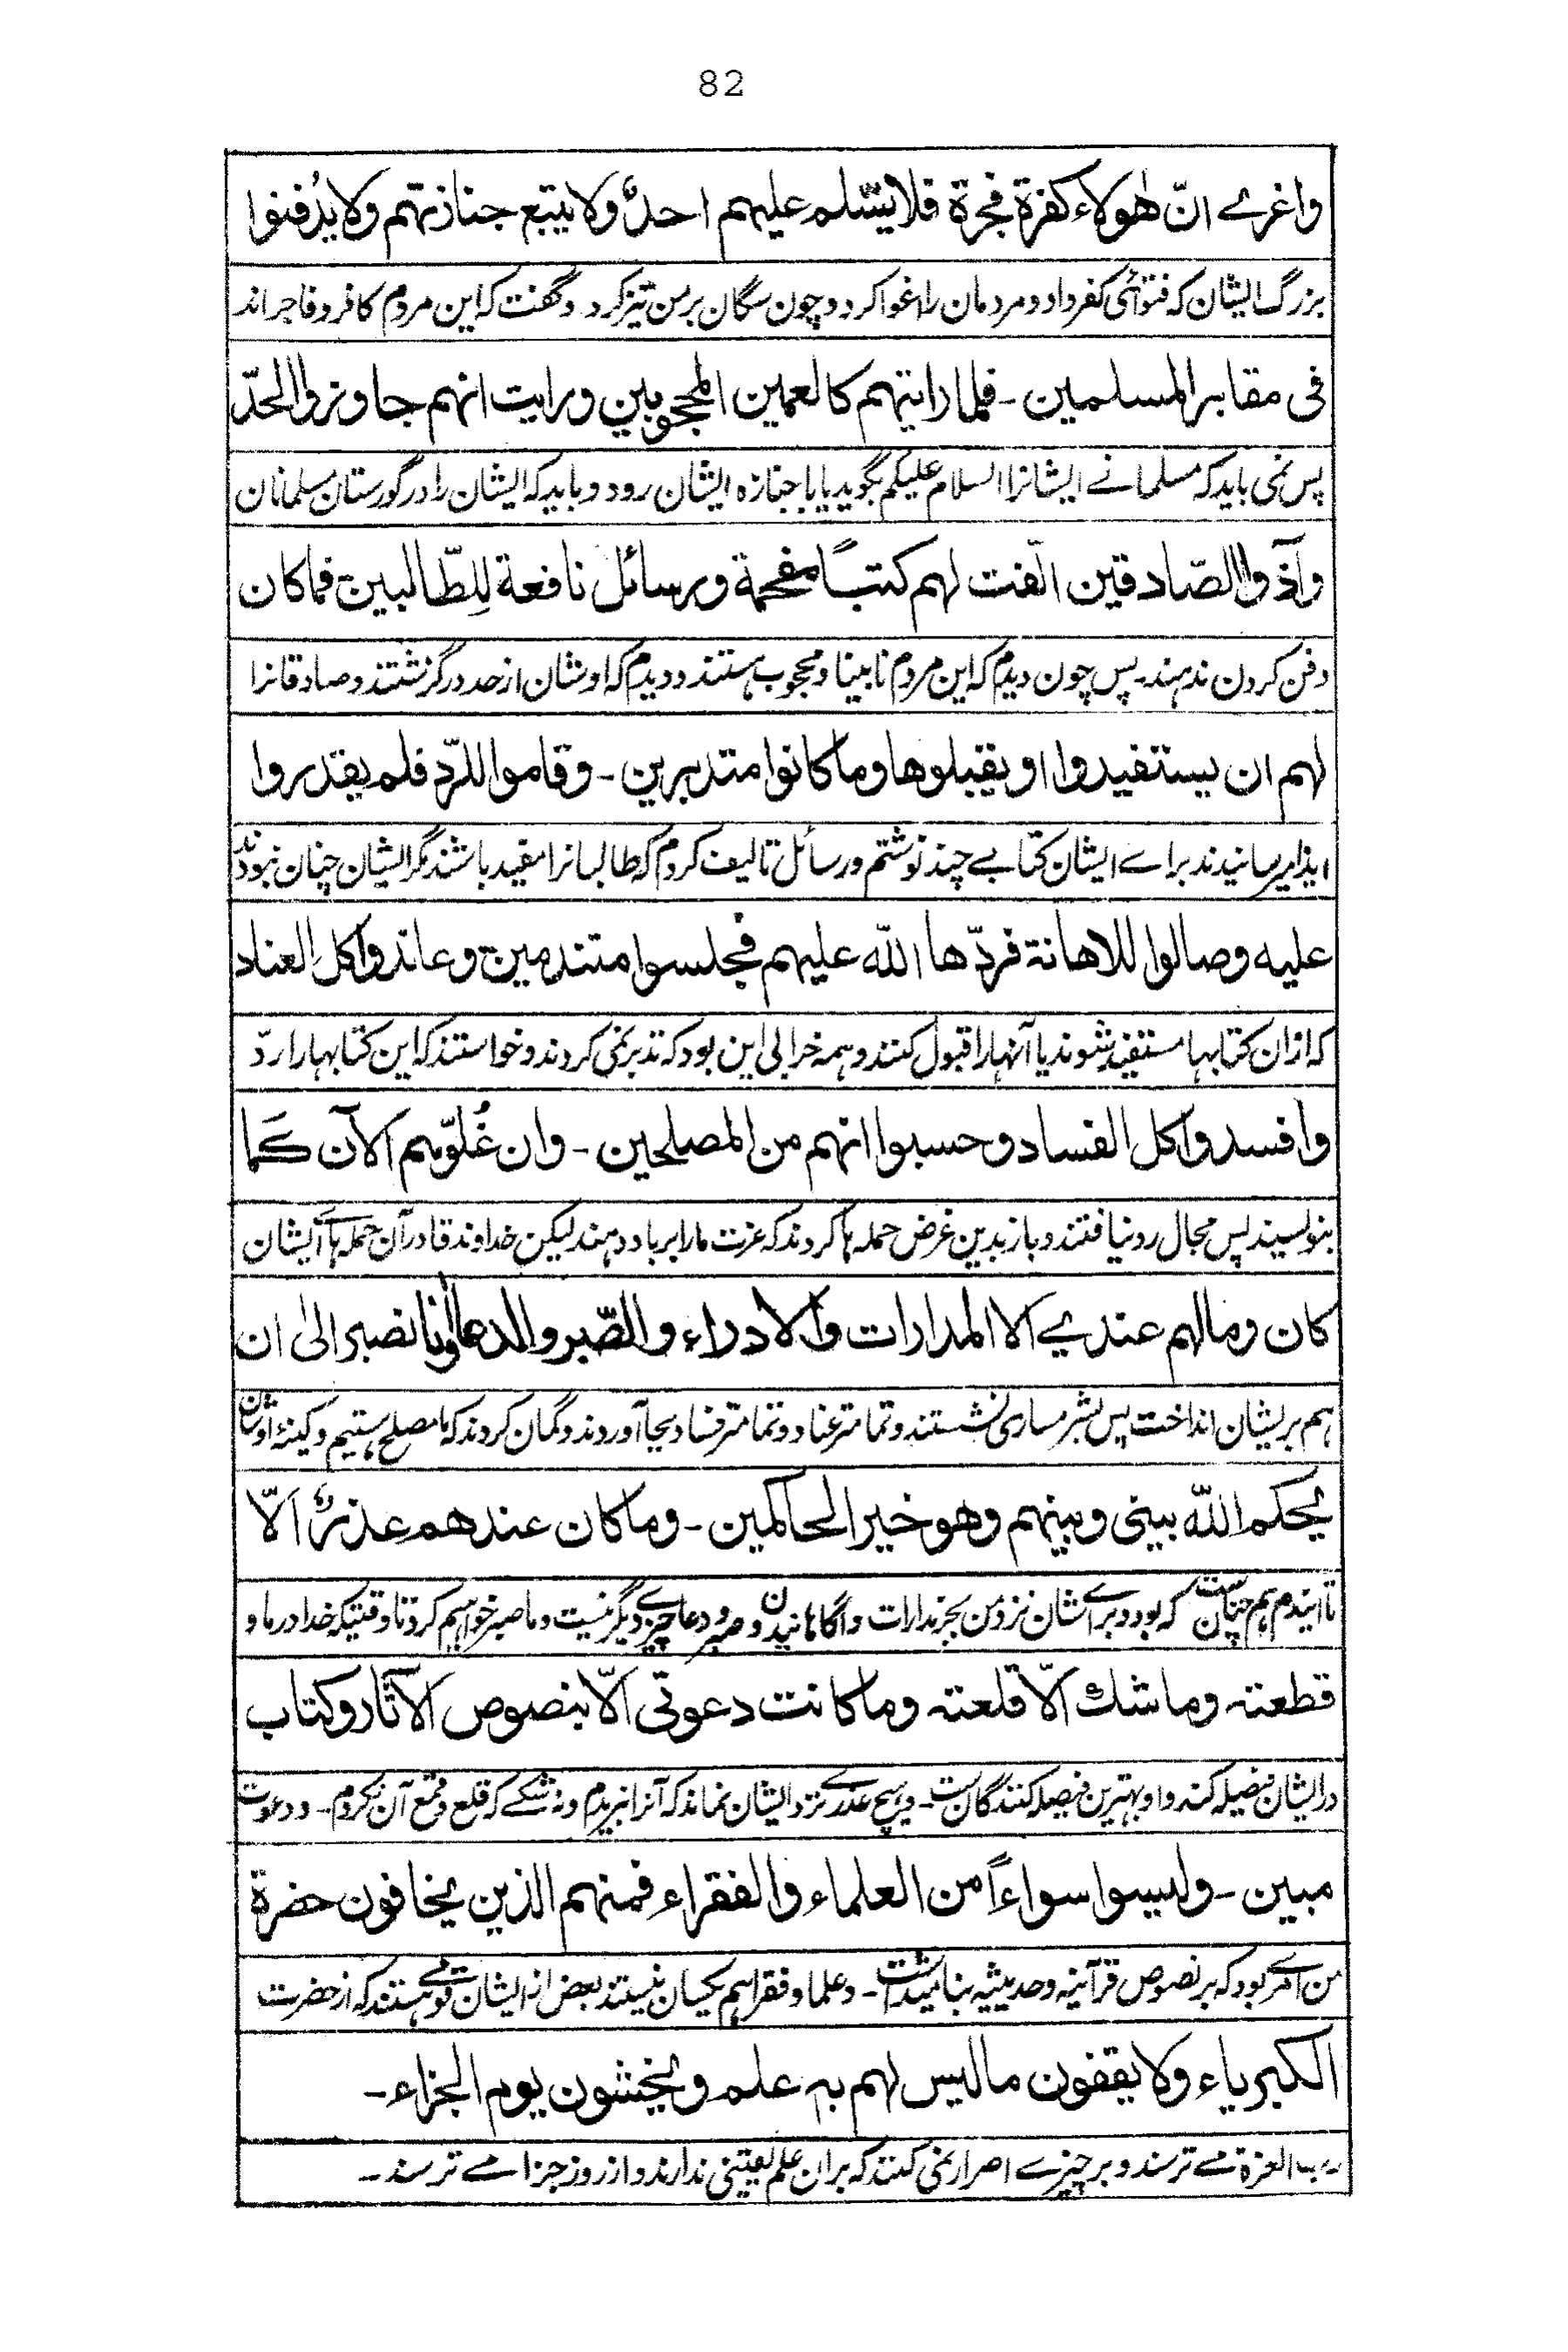 82
واغرے انّ هٰولاء كفرة فجرة فلا يسّلم عليهم احدٌ ولا يتبع جنازتهم ولا يُدفنوا
بزرگ ایشان کہ فتوائی کفر داد و مردمان را اغوا کرد و چون سگان بر من تیز کرد و گفت کہ این مردم کافر و فاجر اند
فى مقابر المسلمين ۔ فلما رايتهم كالعمين المحجوبين ورايت انهم جاوزوا الحدّ
پس نمی باید کہ مسلمانے ایشانرا السلام علیکم بگوید یا با جنازہ ایشان رود و باید کہ ایشان را در گورستان مسلمانان
وآذوا الصّادقين الّفت لهم كتبًا مفحمة ورسائل نافعة لِلطّالبين فما كان
دفن کردن ندہند۔ پس چون دیدم کہ این مردم نابینا و محجوب ہستند و دیدم کہ اوشان از حد درگزشتند و صادقانرا
لهم ان يستفيدوا او يقبلوها وما كانوا متدبرين ۔ وقاموا للرّد فلم يقدروا
ایذا میرسانیدند برائے ایشان کتابے چند نوشتم و رسائل تالیف کردم کہ طالبانرا مفید باشند مگر ایشان چنان نبودند
عليه وصالوا للاهانة فردّها اللّٰه عليهم فجلسوا متندمين وعاندوا كل العناد
کہ ازان کتابہا مستفید شوند یا آنہارا قبول کنند و ہمہ خرابی این بود کہ تدبر نمی کردند و خواستند کہ این کتابہارا ردّ
وافسدوا كل الفساد وحسبوا انهم من المصلحين ۔ وان غُلوّهم الآن كَما
بنویسند پس مجال رد نیافتند و باز بدین غرض حملہ ہا کردند کہ عزت مارا برباد دہند لیکن خداوند قادر آن حملہ ہائے ایشان
كان وما لهم عندے الا المدارات والادراء والصّبر والدعا وانّا نصبر الىٰ ان
ہم بر ایشان انداخت پس بشرمساری نشستند و تمامتر عناد و تمامتر فساد بجا آوردند و گمان کردند کہ ما مصلح ہستیم و کینۂ اوشان
يحكم اللّٰه بينى وبينهم وهو خير الحاكمين ۔ وما كان عندهم عذرٌ الّا
تا ایندم ہم چنان ست کہ بود و برائے شان نزد من بجز مدارات و آگاہانیدن و صبر و دعا چیزے دیگر نیست و ما صبر خواہیم کرد تا وقتیکہ خدا در ما و
قطعتہ وما شك الّا قلعتہ وما كانت دعوتى الّا بنصوص الآثار وكتاب
در ایشان فیصلہ کند و او بہترین فیصلہ کنندگان ست۔ و ہیچ عذرے نزد ایشان نماند کہ آنرا نبریدم و نہ شکے کہ قلع و قمع آن نکردم۔ و دعوت
مبين ۔ وليسوا سواءً من العلماء والفقراء فمنهم الذين يخافون حضرة
من امرے بود کہ بر نصوص قرآنیہ و حدیثیہ بنا میداشت۔ و علما و فقرا ہم یکسان نیستند بعض از ایشان قومے ہستند کہ از حضرت
الكبرياء ولا يقفون ما ليس لهم بہ علم ويخشون يوم الجزاء ۔
رب العزة مے ترسند و بر چیزے اصرار نمی کنند کہ بران علم یقینی ندارند و از روز جزا مے ترسند۔